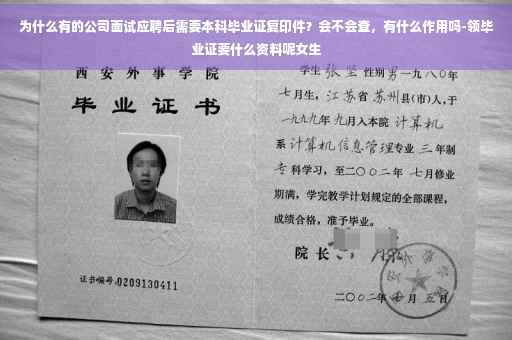 为什么有的公司面试应聘后需要本科毕业证复印件？会不会查，有什么作用吗-领毕
业证要什么资料呢女生
西安外事学院
毕业证书
证书编号:0209130411
学生张 性别男一九八〇年
七月生，江苏省苏州县(市)人,于
一九九九年九月入本院计算机
系计算机信息管理专业三年制
专科学习，至二〇〇二年七月修业
期满，学完教学计划规定的全部课程，
成绩合格，准予毕业。
院长
二〇〇二年 月五日